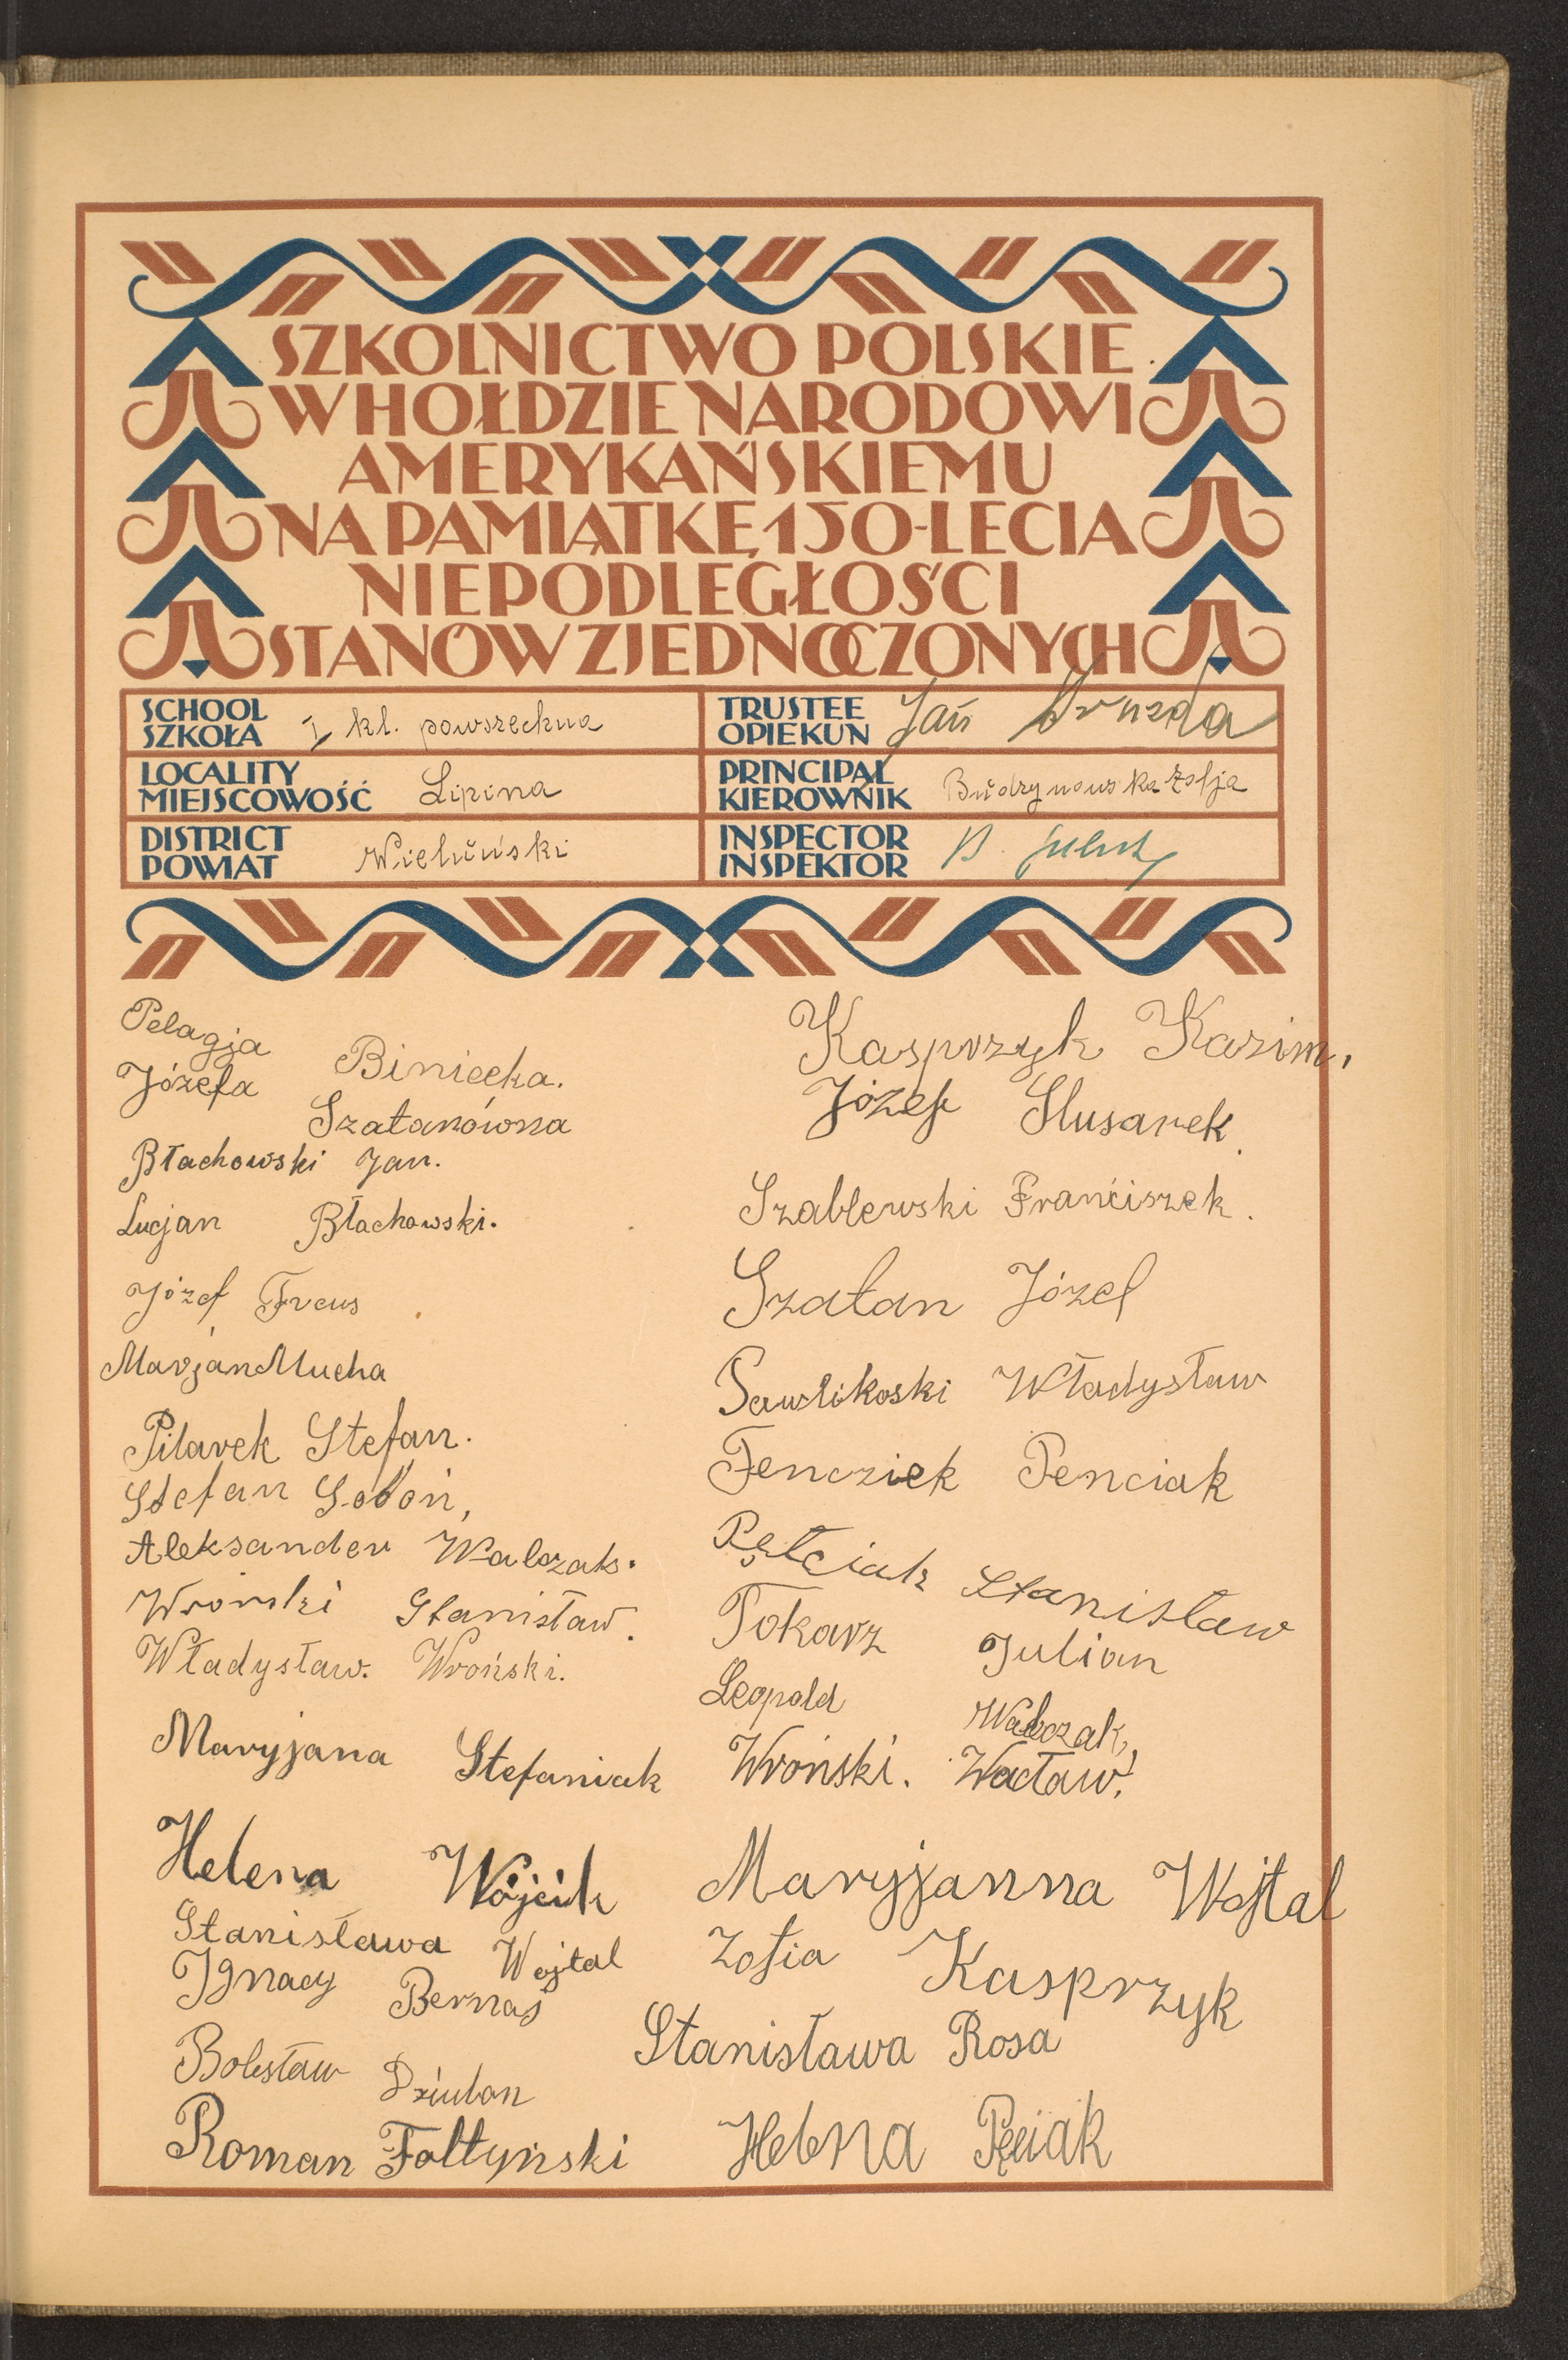 SZKOLNICTWO POLSKIE
W HOŁDZIE NARODOWI
AMERYKAŃSKIEMU
NA PAMIĄTKĘ 150-LECIA
NIEPODLEGŁOŚCI
STANÓW ZJEDNOCZONYCH
SCHOOL
SZKOŁA
I kl. powszechna
TRUSTEE
OPIEKUN
Jan
LOCALITY
MIEJSCOWOŚĆ
Lipina
PRINCIPAL
KIEROWNIK
Budzynowska Zofja
DISTRICT
POWIAT
Wieluński
INSPECTOR
INSPEKTOR
Pelagja Biniecka.
Józefa Szatanówna
Błachowski Jan.
Lucjan Błachowski.
Józef Freus
Marjan Mucha
Pilarek Stefan.
Stefan Soboń,
Aleksander Walczak.
Wroński Stanisław.
Władysław. Wroński.
Maryjana Stefaniak
Helena Wójcik
Stanisława Wojtal
Ignacy Bernaś
Bolesław Dziuban
Roman Fołtyński
Kasprzyk Kazim.
Józef Slusarek.
Szablewski Franciszek.
Szatan Józef
Pawlikoski Władysław
Fenciak
Stanisław
Tokarz Julian
Leopold Walczak,
Wroński. Wacław.
Maryjanna Wojtal
Zofia Kasprzyk
Stanisława Rosa
Helena Pęciak